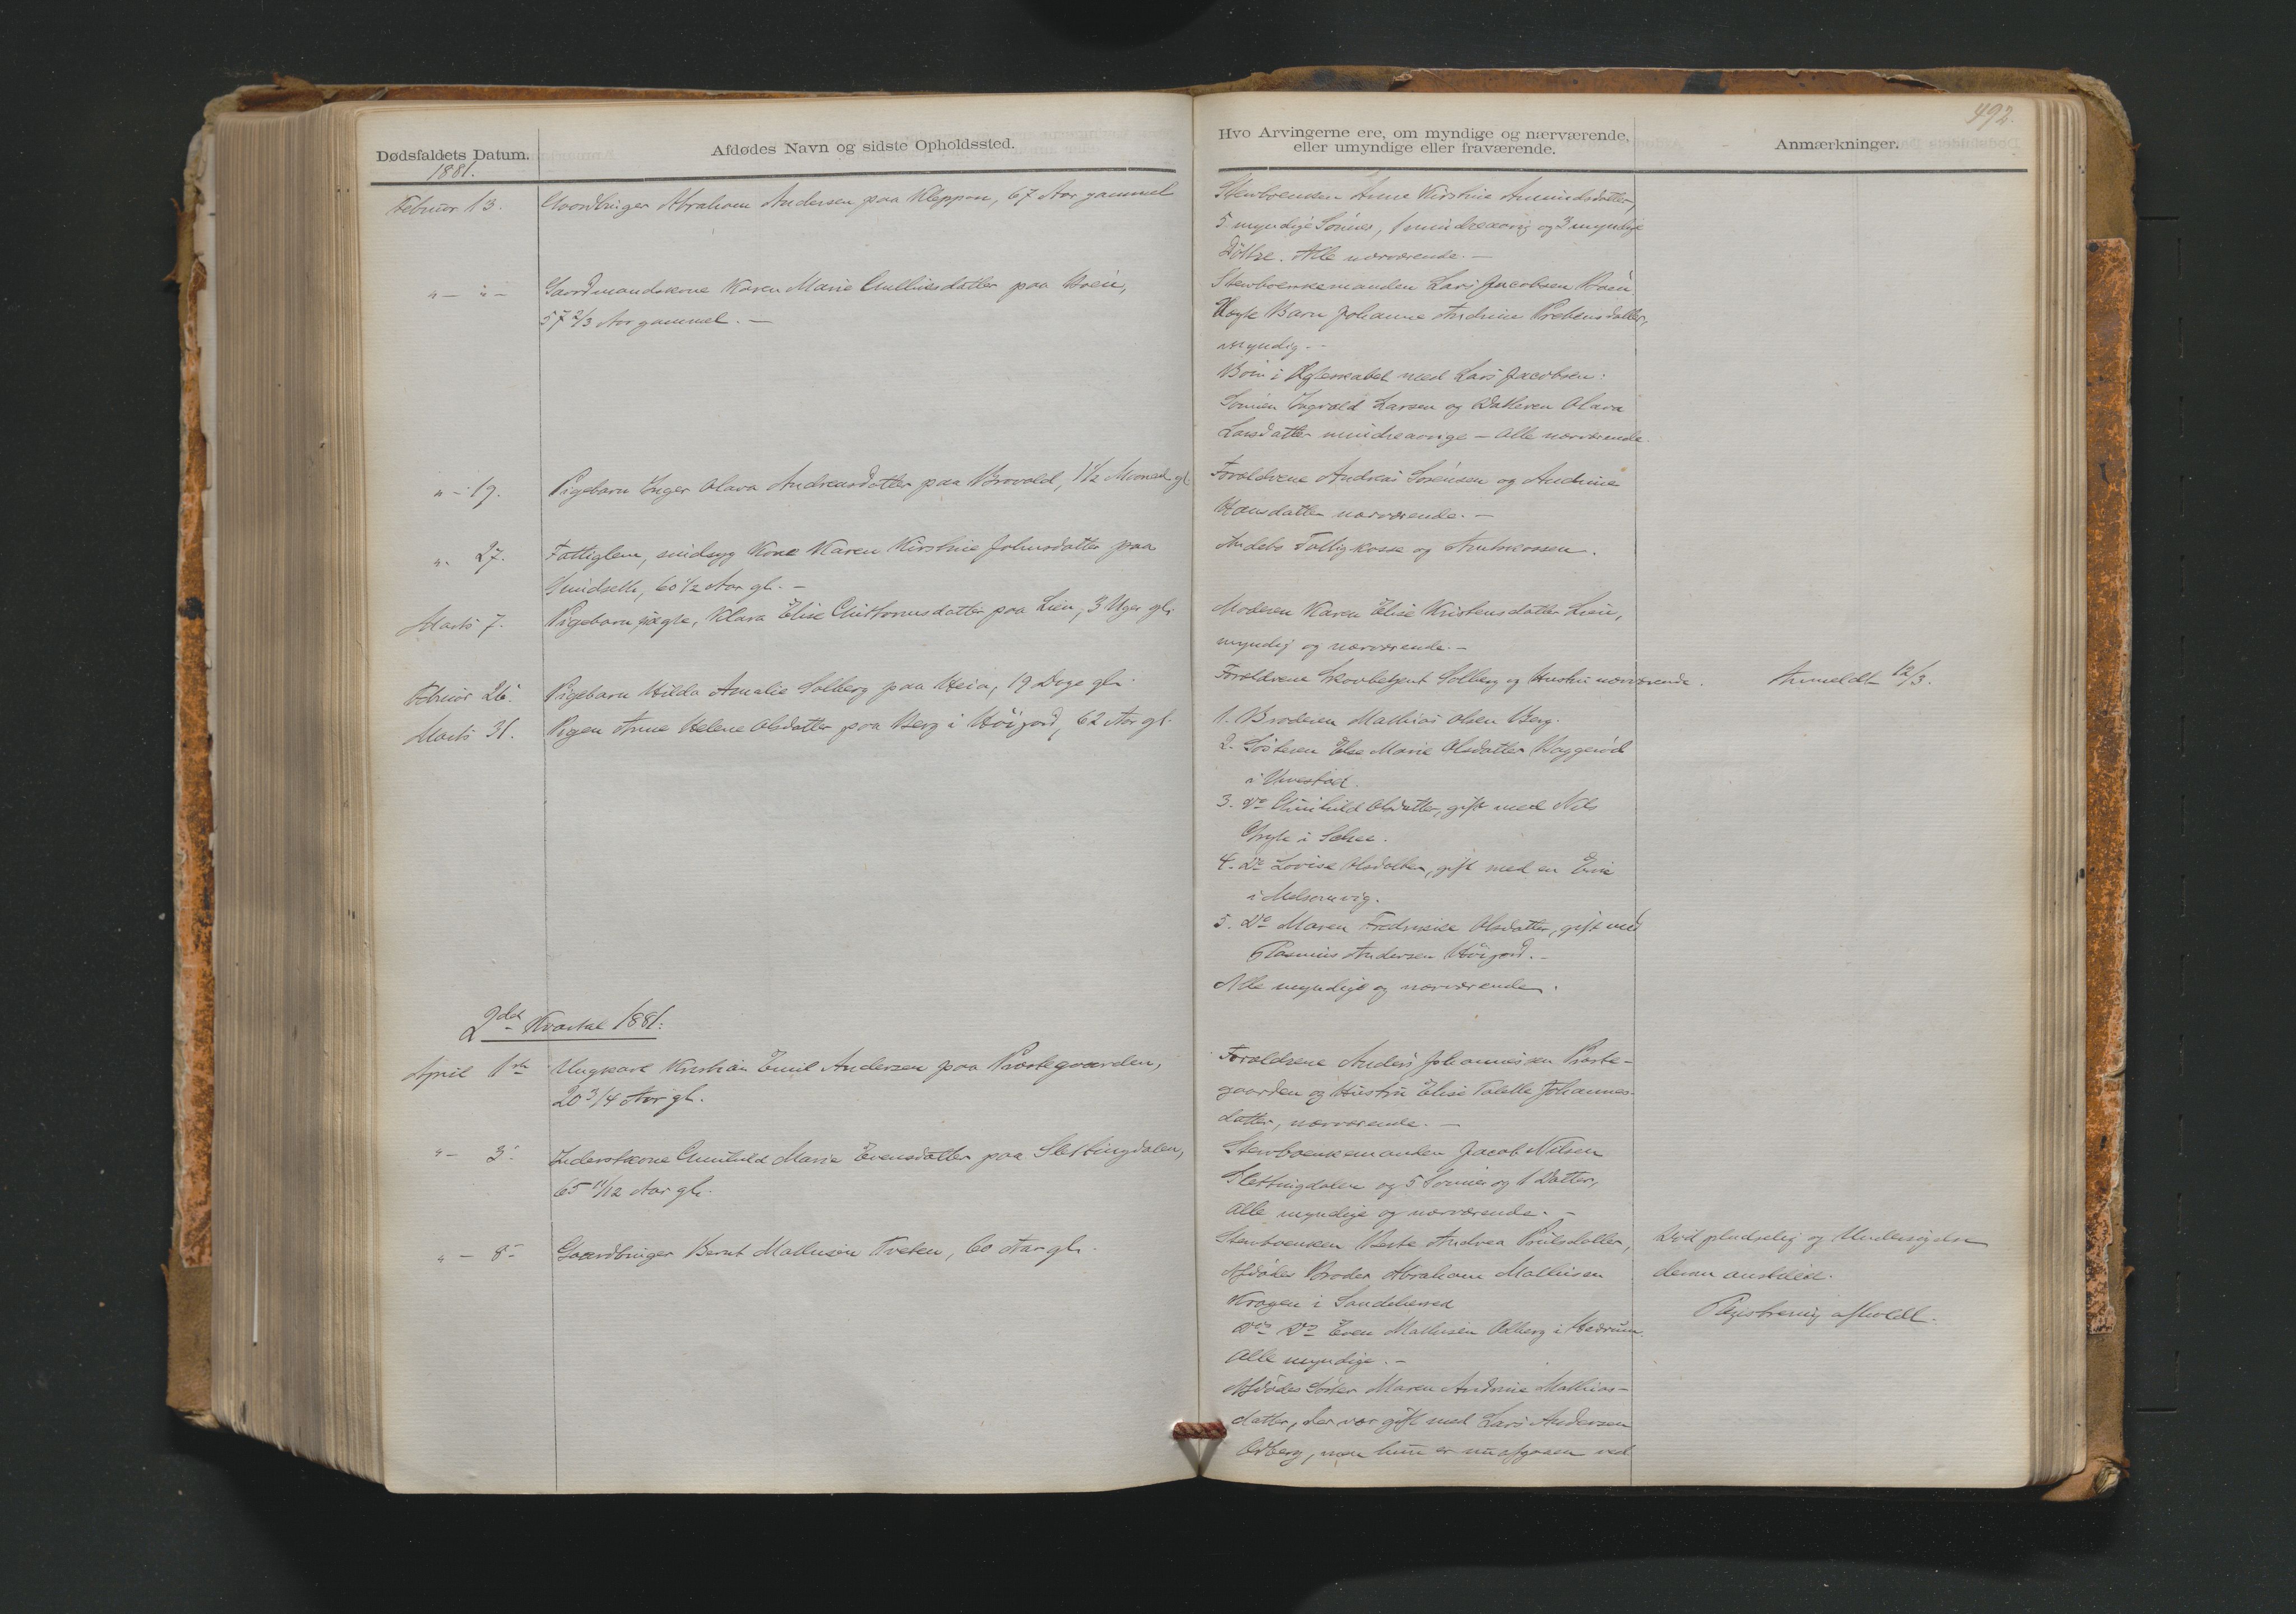 492.
Dødsfaldets Datum.
Afdødes Navn og sidste Opholdssted.
Hvo Arvingerne ere, om myndige og nærværende,
eller umyndige eller fraværende.
Anmærkninger.
1881.
Februar 13.
Gaardbruger Abraham Andersen paa Kleppan, 67 Aar gammel
Stervboenken Anne Kirstine Amundsdatter,
5 myndige Sønner, 1 mindreaarig og 3 myndige
Døttre. Alle nærværende. —
" — " —
Gaardmandskone Karen Marie Gulliksdatter paa Hvein,
57 2/3 Aar gammel. —
Stervboenkemanden Lars Jacobsen
Barn Johanne Andrine Prebensdatter,
myndig. —
Børn i Ægteskabet med Lars Jacobsen:
Sønnen Ingvald Larsen og Datteren Olava
Larsdatter mindreaarige — Alle nærværende.
" — 19.
Pigebarn Inger Olava Andreasdatter paa Brovold, 1 1/2 Maaned gl.
Forældrene Andreas Sørensen og Andrine
Hansdatter nærværende. —
" 27.
Fattiglem, sindsyg Kone Karen Kirstine Johnsdatter paa
60 1/2 Aar gl. —
Andebo Fattigkasse og Amtskassen.
Marts 7.
Pigebarn uægte, Klara Elise paa Lien, 3 Uger gl.
Moderen Karen Elise Kristensdatter Lien,
myndig og nærværende. —
Februar 26.
Pigebarn Hilda Amalie Solberg paa Heia, 19 Dage gl.
Forældrene Skovbetjent Solberg og Hustru nærværende.
Anmeldt 12/3.
Marts 31.
Pigen Anne Helene Olsdatter paa Berg i Höijord, 62 Aar gl.
1. Broderen Mathias Olsen Berg.
2. Søsteren Else Marie Olsdatter
i
3. Do Gunhild Olsdatter, gift med Nils
i
4. Do Lovise Olsdatter, gift med en
i Melsomvig.
5. Do Maren Fredrikke Olsdatter, gift med
Rasmus Andersen Höijord. —
Alle myndige og nærværende.
2det Kvartal 1881.
April 1ste
Ungkarl Kristian Emil Andersen paa Præstegaarden,
20 3/4 Aar gl.
Forældrene Anders Johannesen Præste-
gaarden og Hustru Elise Johannes-
datter, nærværende. —
" — 3.
Inderstkone Gunhild Marie Evensdatter paa Slettingdalen,
65 11/12 Aar gl.
Stervboenkemanden Jacob Nilsen
Slettingdalen og 5 Sønner og 1 Datter,
Alle myndige og nærværende. —
" — 8.
Gaardbruger Bernt Mathisen Tveten, 60 Aar gl.
Stervboenken Berte Andrea Poulsdatter,
Afdødes Broder Abraham Mathisen
Kragen i Sandeherred
Do Do Even Mathisen Odberg i Hedrum.
Alle myndige. —
Afdødes Søster Maren Andrine Mathias-
datter, der var gift med Lars Andersen
Odberg, men hun er nu afgaaen ved
Död pludselig og Undersøgelse
derom anstillet.
Registrering afholdt.